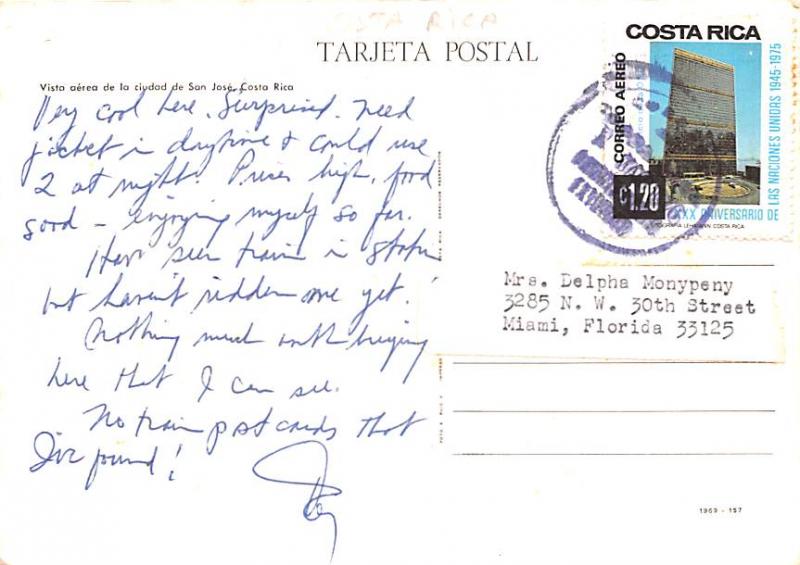 COSTA RICA
TARJETA POSTAL
Vista aérea de la ciudad de San José, Costa Rica
Very cool here. Surprised. Need
jacket in daytime & could use
2 at night. Prices high, food
good – enjoying myself so far.
Have seen train in station
but haven't ridden one yet!
Nothing much worth buying
here that I can see.
No train postcards that
I've found!
COSTA RICA
CORREO AEREO
LAS NACIONES UNIDAS 1945-1975
XXX ANIVERSARIO DE
¢1.20
LITOGRAFIA LEHMANN COSTA RICA
Mrs. Delpha Monypeny
3285 N. W. 30th Street
Miami, Florida 33125
1969 - 157